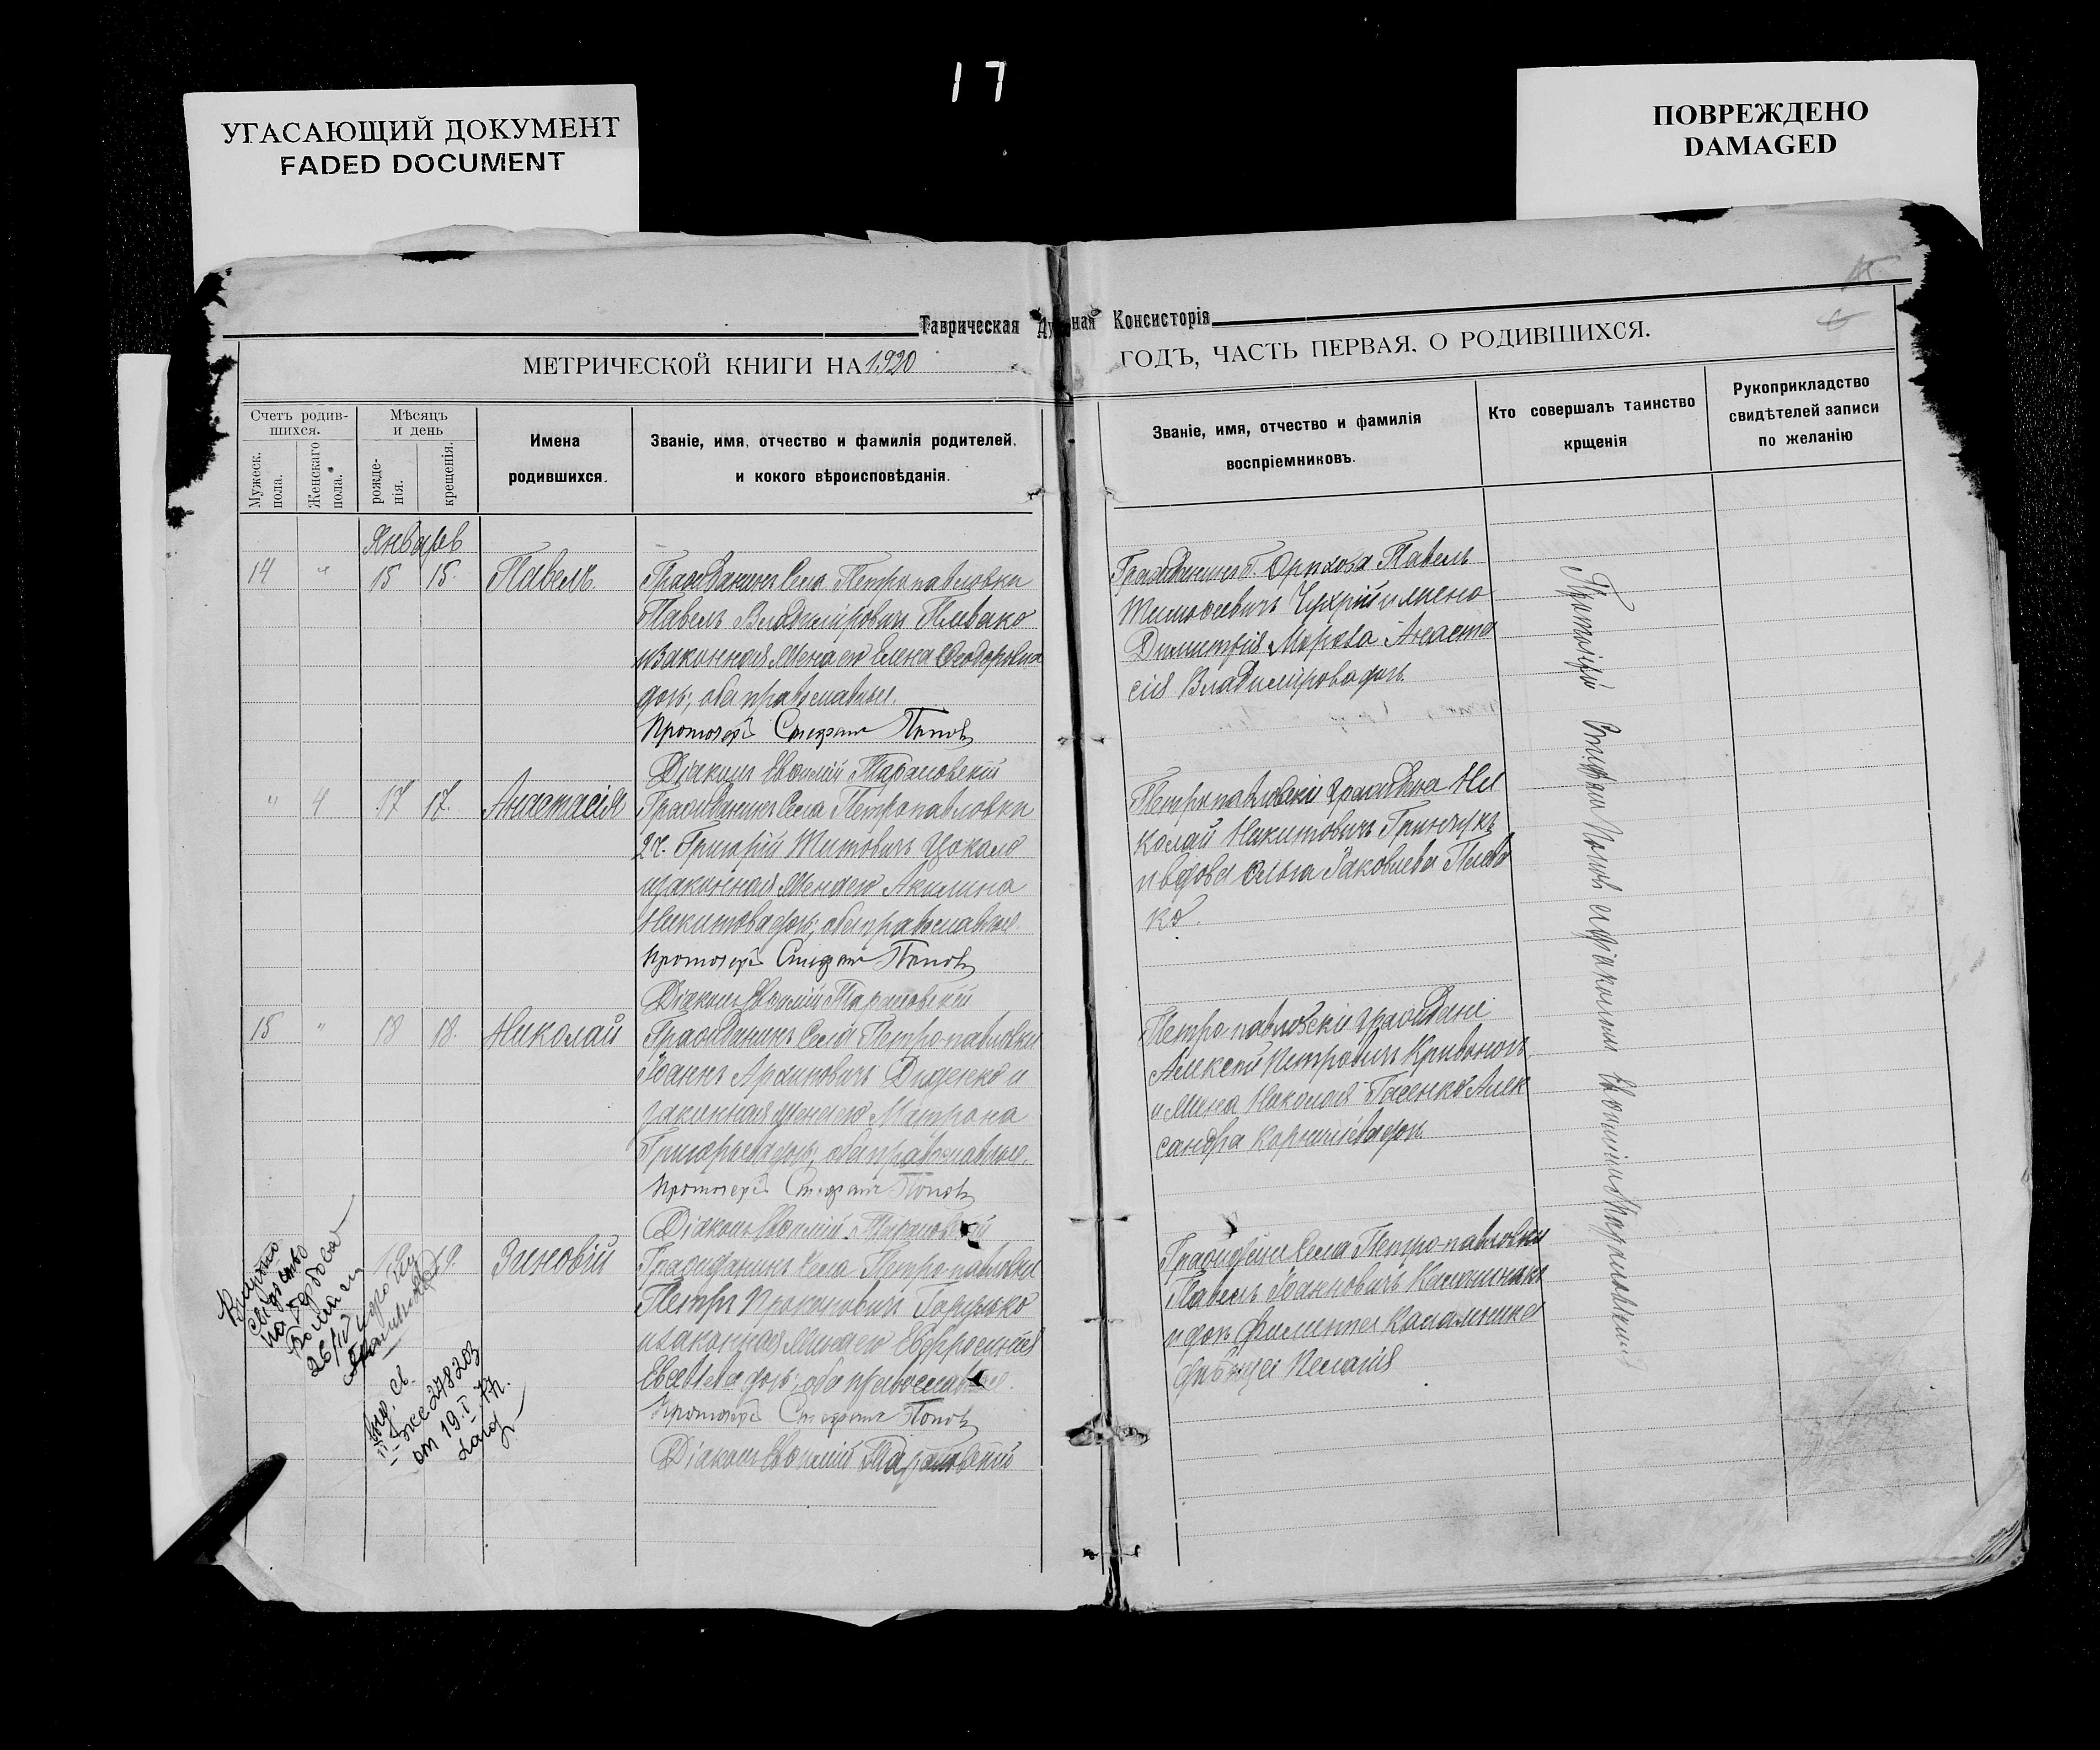 17
УГАСАЮЩИЙ ДОКУМЕНТ
FADED DOCUMENT
ПОВРЕЖДЕНО
DAMAGED
Таврическая Ду ная Консисторія
МЕТРИЧЕСКОЙ КНИГИ НА 1920
ГОДЪ, ЧАСТЬ ПЕРВАЯ. О РОДИВШИХСЯ.
Счетъ родив-
шихся.
Мужеск.
пола.
Женскаго
пола.
Мѣсяцъ
и день
рожде-
нія.
крещенія.
Имена
родившихся.
Званіе, имя, отчество и фамилія родителей,
и кокого вѣроисповѣданія.
Званіе, имя, отчество и фамилія
воспріемниковъ.
Кто совершалъ таинство
крщенія
Рукоприкладство
свидѣтелей записи
по желанію
Январь
14 " 15 15. Павелъ.
Гражданинъ Села Петропавловки
Павелъ Владиміровичъ Плевако
и законная жена его Елена Ѳеодоровна
дочь; оба православные.
Протоіерей Стефанъ Поповъ
Діаконъ Евѳимій Тарановскій
Гражданинъ г. Орѣхова Павелъ
Тимоѳеевичъ и жена
Димитрія Анаста
сія Владимірова дочь.
" 4 17 17. Анастасія
Гражданинъ Села Петропавловки
Григорій Титовичъ Цокало
и законная жена его Акилина
Никитова дочь; оба православные.
Протоіерей Стефанъ Поповъ
Діаконъ Евѳимій Тарановскій
Петропавловскій гражданин Ни
колай Никитовичъ Гринчукъ
и вдова Ольга Іаковлева Плева
ко.
15 " 18 18. Николай
Гражданинъ Села Петропавловки
Іоаннъ Архиповичъ Диденко и
законная жена его Матрона
Григорьева дочь; оба православные.
Протоіерей Стефанъ Поповъ
Діаконъ Евѳимій Тарановскій
Петропавловскіе граждане
Алексѣй Петровичъ Кривоносъ
и жена Николая Алек
сандра Корнилiева дочь.
19. Зиновій
Гражданинъ Села Петропавловки
Петръ Прокоповичъ
и законная жена его Евфросинія
Евсѣева дочь; оба православные.
Протоіерей Стефанъ Поповъ
Діаконъ Евѳимій Тарановскій
Граждане Села Петропавловки
Павелъ Іоанновичъ
и дочь
дѣвица Пелагія
Протоіерей Стефанъ Поповъ съ діакономъ Евѳиміемъ Тарановскимъ
26/IV
278203
от 19.I.